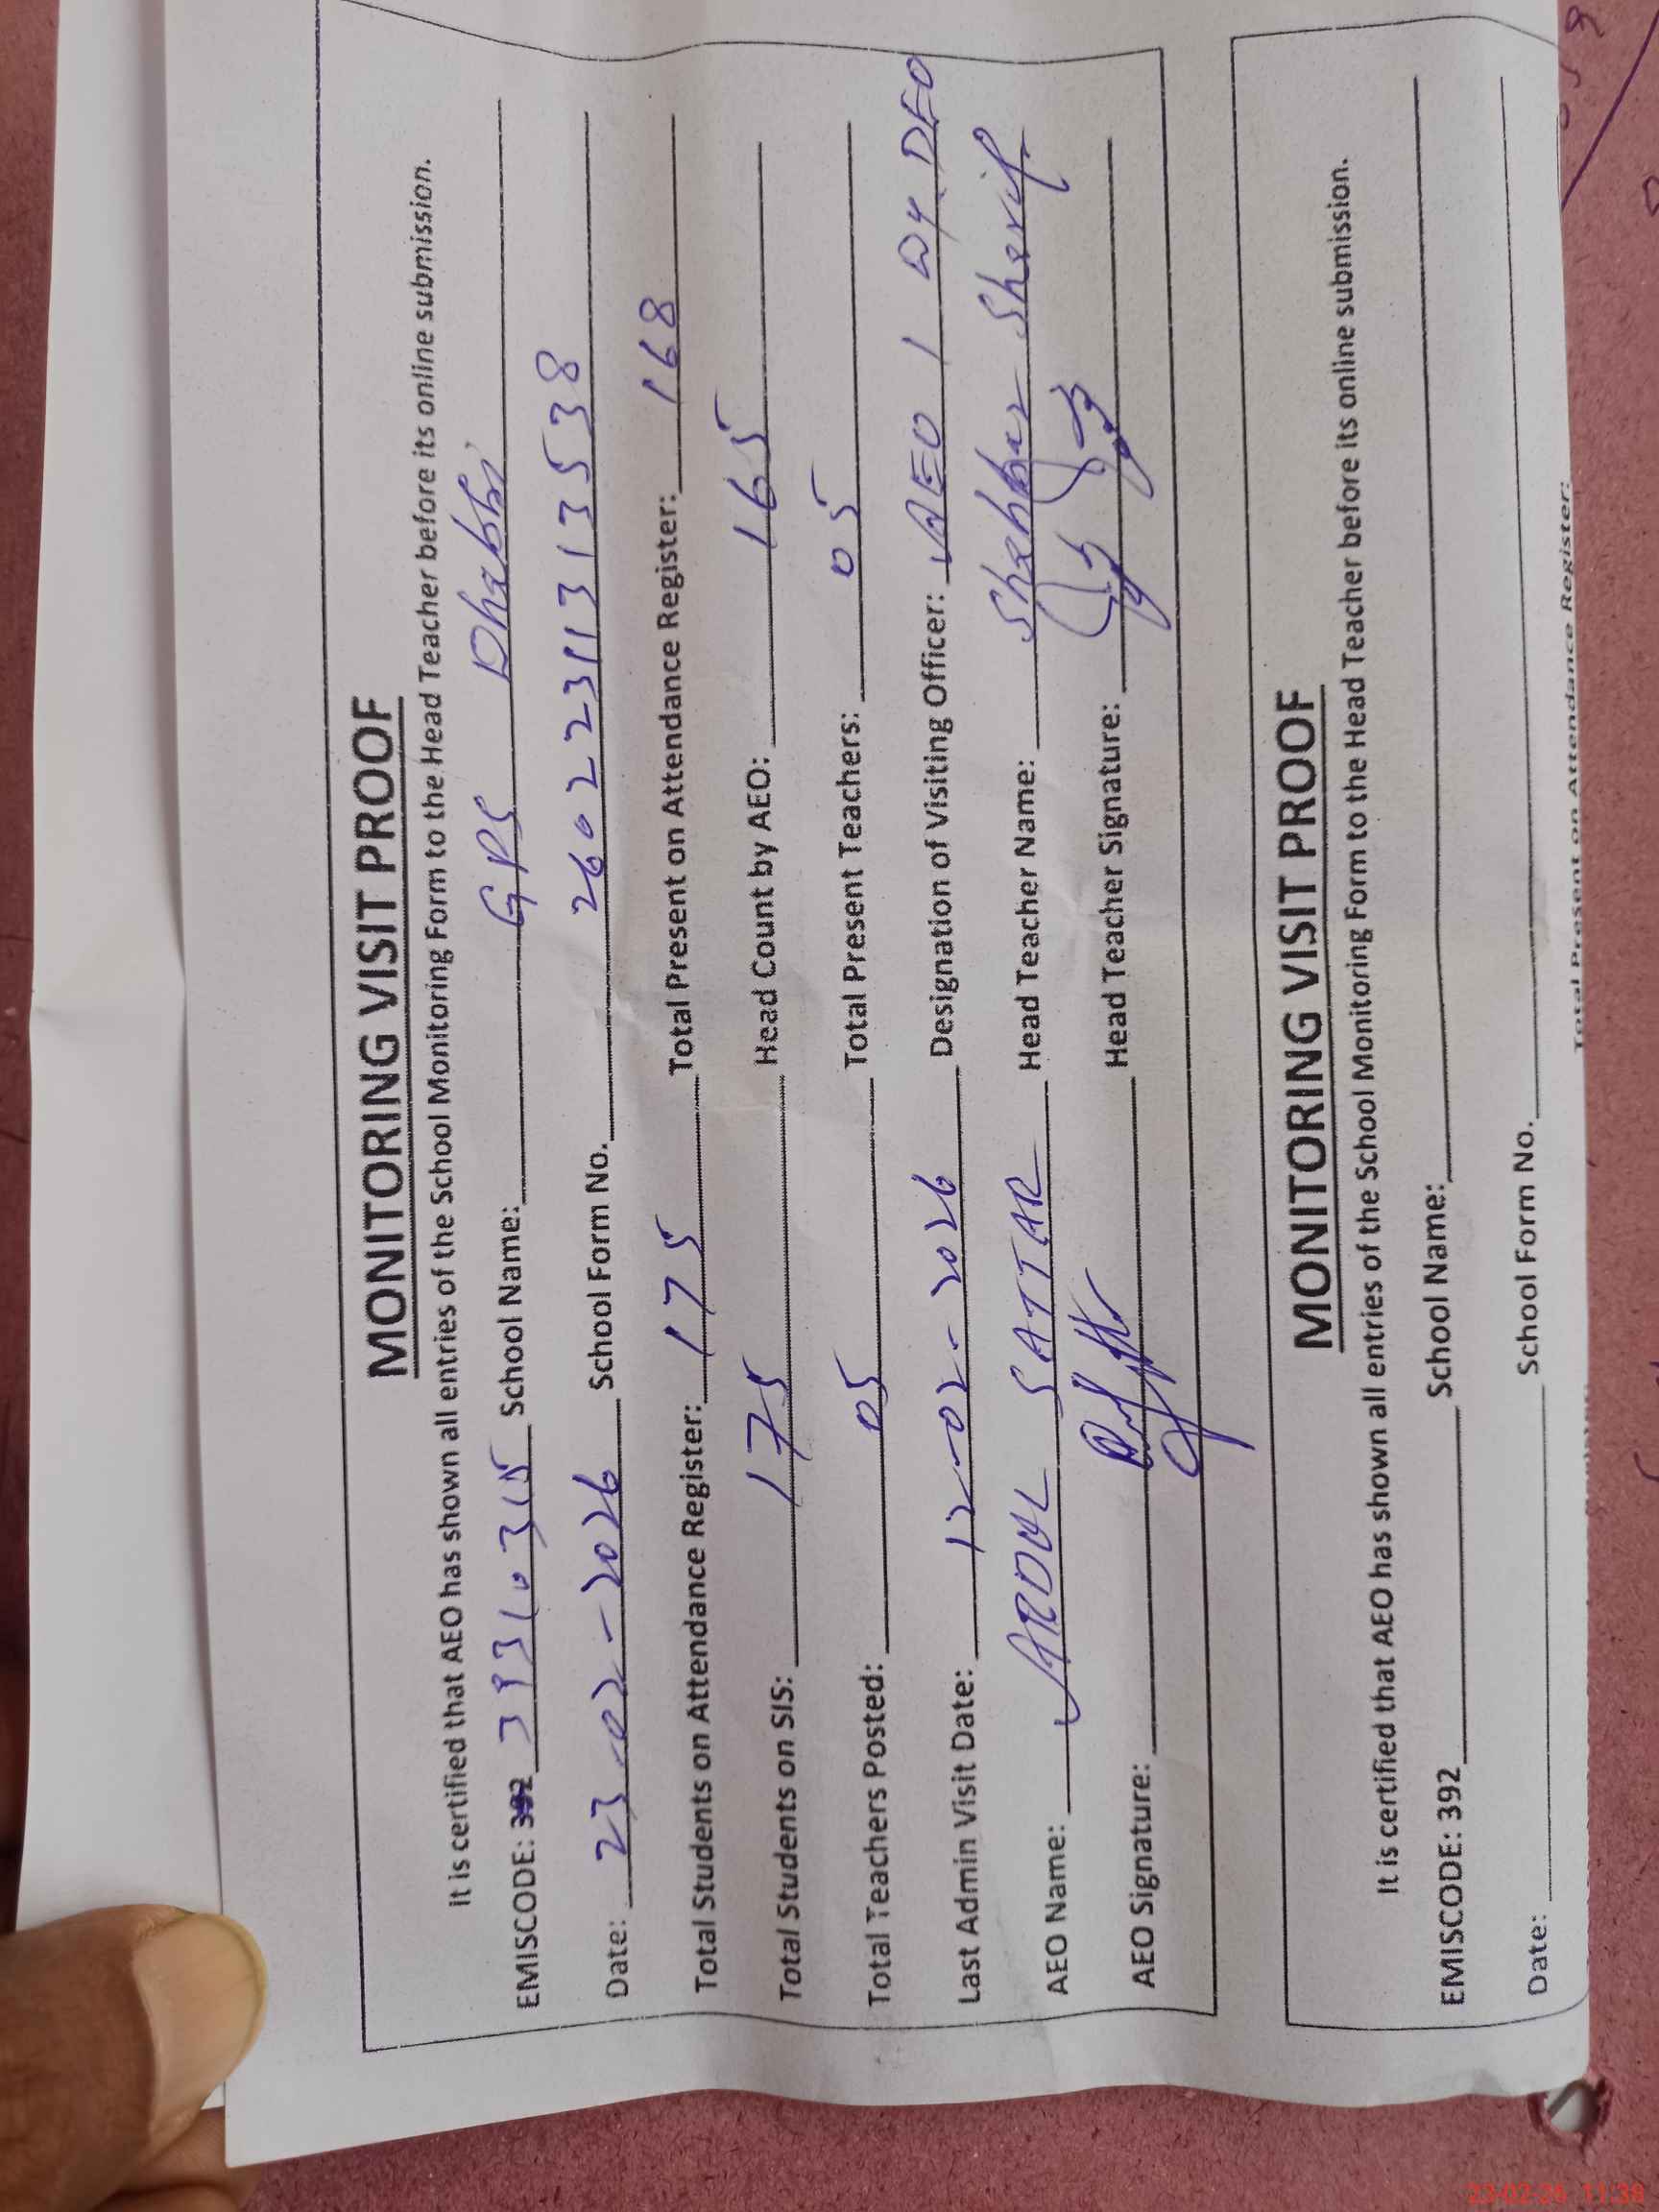 MONITORING VISIT PROOF
It is certified that AEO has shown all entries of the School Monitoring Form to the Head Teacher before its online submission.
EMISCODE: 39310315 School Name: GPS Dhabbi
Date: 23-02-2026 School Form No. 26022311313538
Total Students on Attendance Register: 175 Total Present on Attendance Register: 168
Total Students on SIS: 175 Head Count by AEO: 165
Total Teachers Posted: 05 Total Present Teachers: 05
Last Admin Visit Date: 12-02-2026 Designation of Visiting Officer: AEO / DY.DEO
AEO Name: ABDUL SATTAR Head Teacher Name: Shahbaz Sharif
AEO Signature: Head Teacher Signature:
MONITORING VISIT PROOF
It is certified that AEO has shown all entries of the School Monitoring Form to the Head Teacher before its online submission.
EMISCODE: 392 School Name:
Date: School Form No.
Total Present on Attendance Register:
23-02-26 11:38